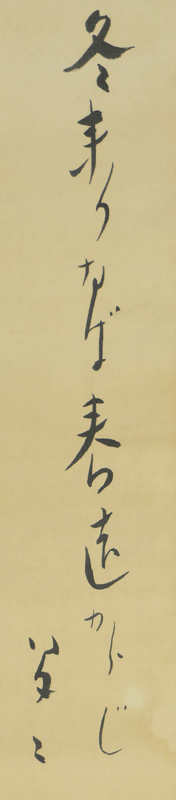 冬来りなば春遠からじ